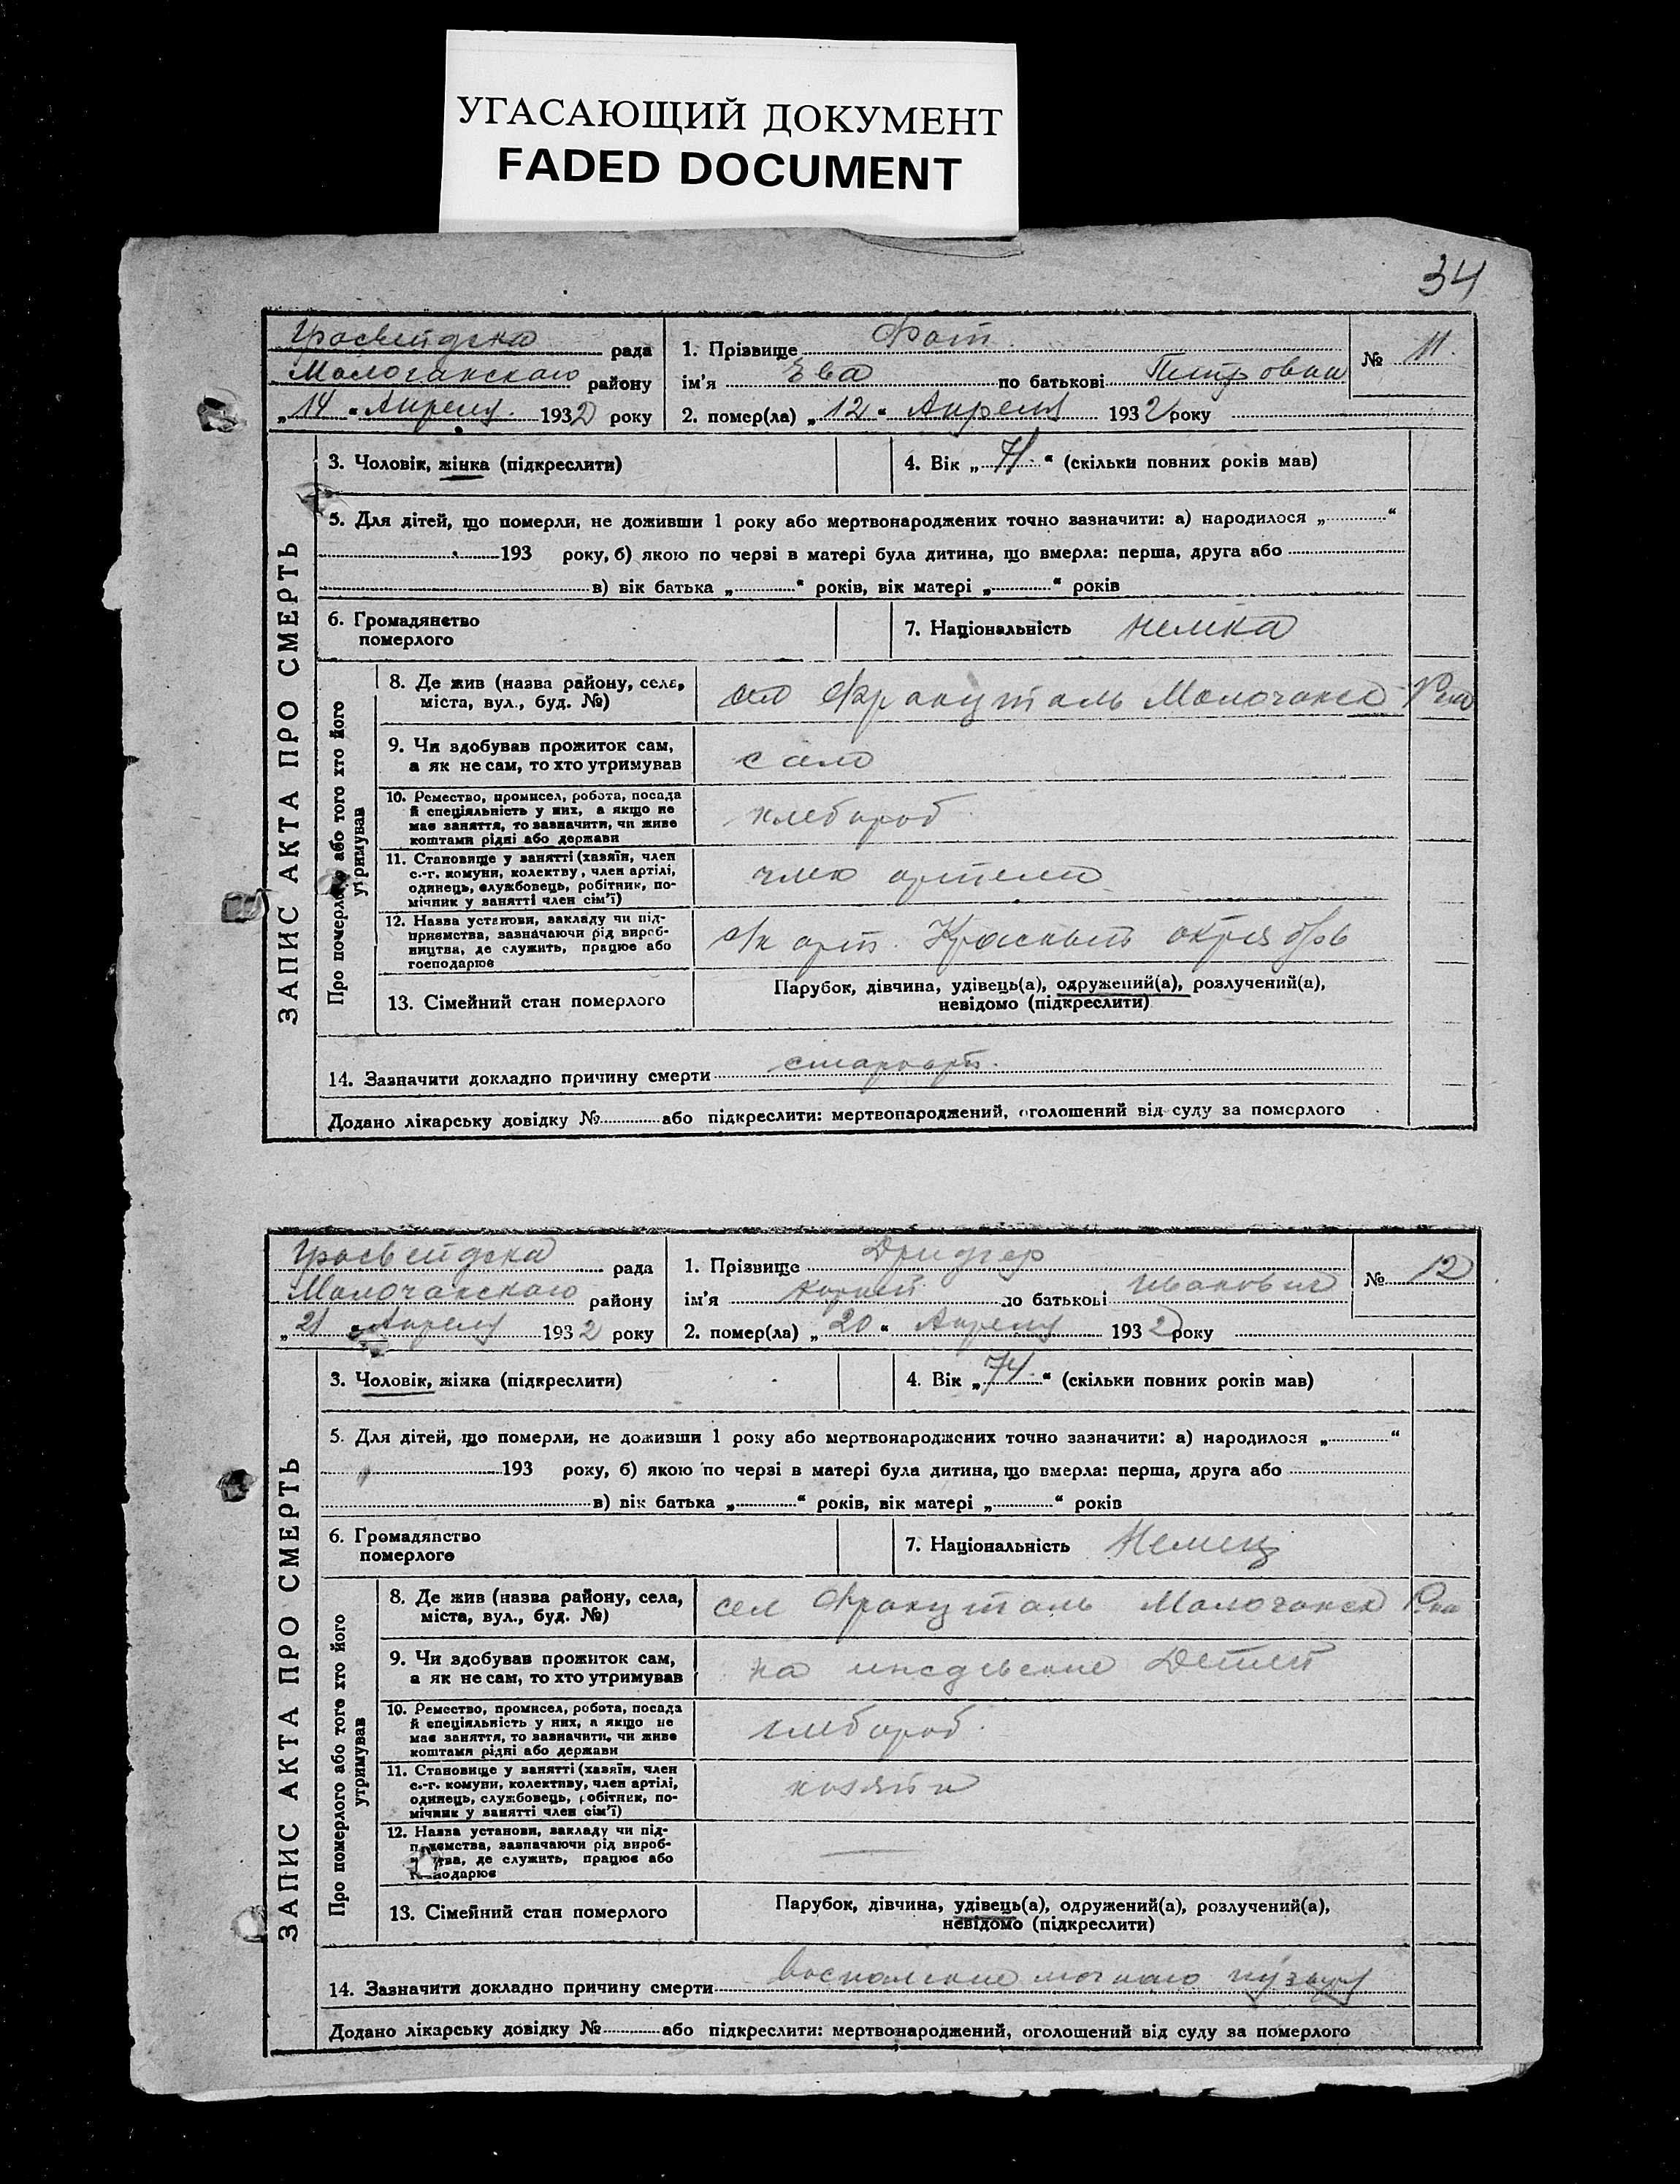 УГАСАЮЩИЙ ДОКУМЕНТ
FADED DOCUMENT
34
ЗАПИС АКТА ПРО СМЕРТЬ
Гросвейдска рада
Молочанского району
„14“ Апреля 1932 року
1. Прізвище Фот
ім’я Ева по батькові Петровна
2. помер(ла) „12“ Апреля 1932 року
№ 11.
3. Чоловік, жінка (підкреслити)
4. Вік „71“ (скільки повних років мав)
5. Для дітей, що померли, не доживши 1 року або мертвонароджених точно зазначити: а) народилося „ “
193 року, б) якою по черзі в матері була дитина, що вмерла: перша, друга або
в) вік батька „ “ років, вік матері „ “ років
6. Громадянство
померлого
7. Національність немка
Про померлого або того хто його
утримував
8. Де жив (назва району, села,
міста, вул., буд. №)
Францталь Молочанск Р-на
9. Чи здобував прожиток сам,
а як не сам, то хто утримував
сам
10. Ремество, промисел, робота, посада
й спеціяльність у них, а якщо не
має заняття, то зазначити, чи живе
коштами рідні або держави
хлебороб
11. Становище у занятті (хазяїн, член
с.-г. комуни, колективу, член артілі,
одинець, службовець, робітник, по-
мічник у занятті член сім’ї)
член артели
12. Назва установи, закладу чи під-
приємства, зазначаючи рід вироб-
ництва, де служить, працює або
господарює
с/х арт. Красный октябрь
13. Сімейний стан померлого
Парубок, дівчина, удівець(а), одружений(а), розлучений(а),
невідомо (підкреслити)
14. Зазначити докладно причину смерти старость.
Додано лікарську довідку № або підкреслити: мертвонароджений, оголошений від суду за померлого
ЗАПИС АКТА ПРО СМЕРТЬ
Гросвейдска рада
Молочанского району
„21“ Апреля 1932 року
1. Прізвище Дридгер
ім’я Корней по батькові Иванович
2. помер(ла) „20“ Апреля 1932 року
№ 12
3. Чоловік, жінка (підкреслити)
4. Вік „74“ (скільки повних років мав)
5. Для дітей, що померли, не доживши 1 року або мертвонароджених точно зазначити: а) народилося „ “
193 року, б) якою по черзі в матері була дитина, що вмерла: перша, друга або
в) вік батька „ “ років, вік матері „ “ років
6. Громадянство
померлого
7. Національність Немец
Про померлого або того хто його
утримував
8. Де жив (назва району, села,
міста, вул., буд. №)
сел Францталь Молочанск Р-на
9. Чи здобував прожиток сам,
а як не сам, то хто утримував
на Детей
10. Ремество, промисел, робота, посада
й спеціяльність у них, а якщо не
має заняття, то зазначити, чи живе
коштами рідні або держави
хлебороб.
11. Становище у занятті (хазяїн, член
с.-г. комуни, колективу, член артілі,
одинець, службовець, робітник, по-
мічник у занятті член сім’ї)
хозяин
12. Назва установи, закладу чи під-
приємства, зазначаючи рід вироб-
ництва, де служить, працює або
господарює
13. Сімейний стан померлого
Парубок, дівчина, удівець(а), одружений(а), розлучений(а),
невідомо (підкреслити)
14. Зазначити докладно причину смерти воспаление мочного пузыря
Додано лікарську довідку № або підкреслити: мертвонароджений, оголошений від суду за померлого